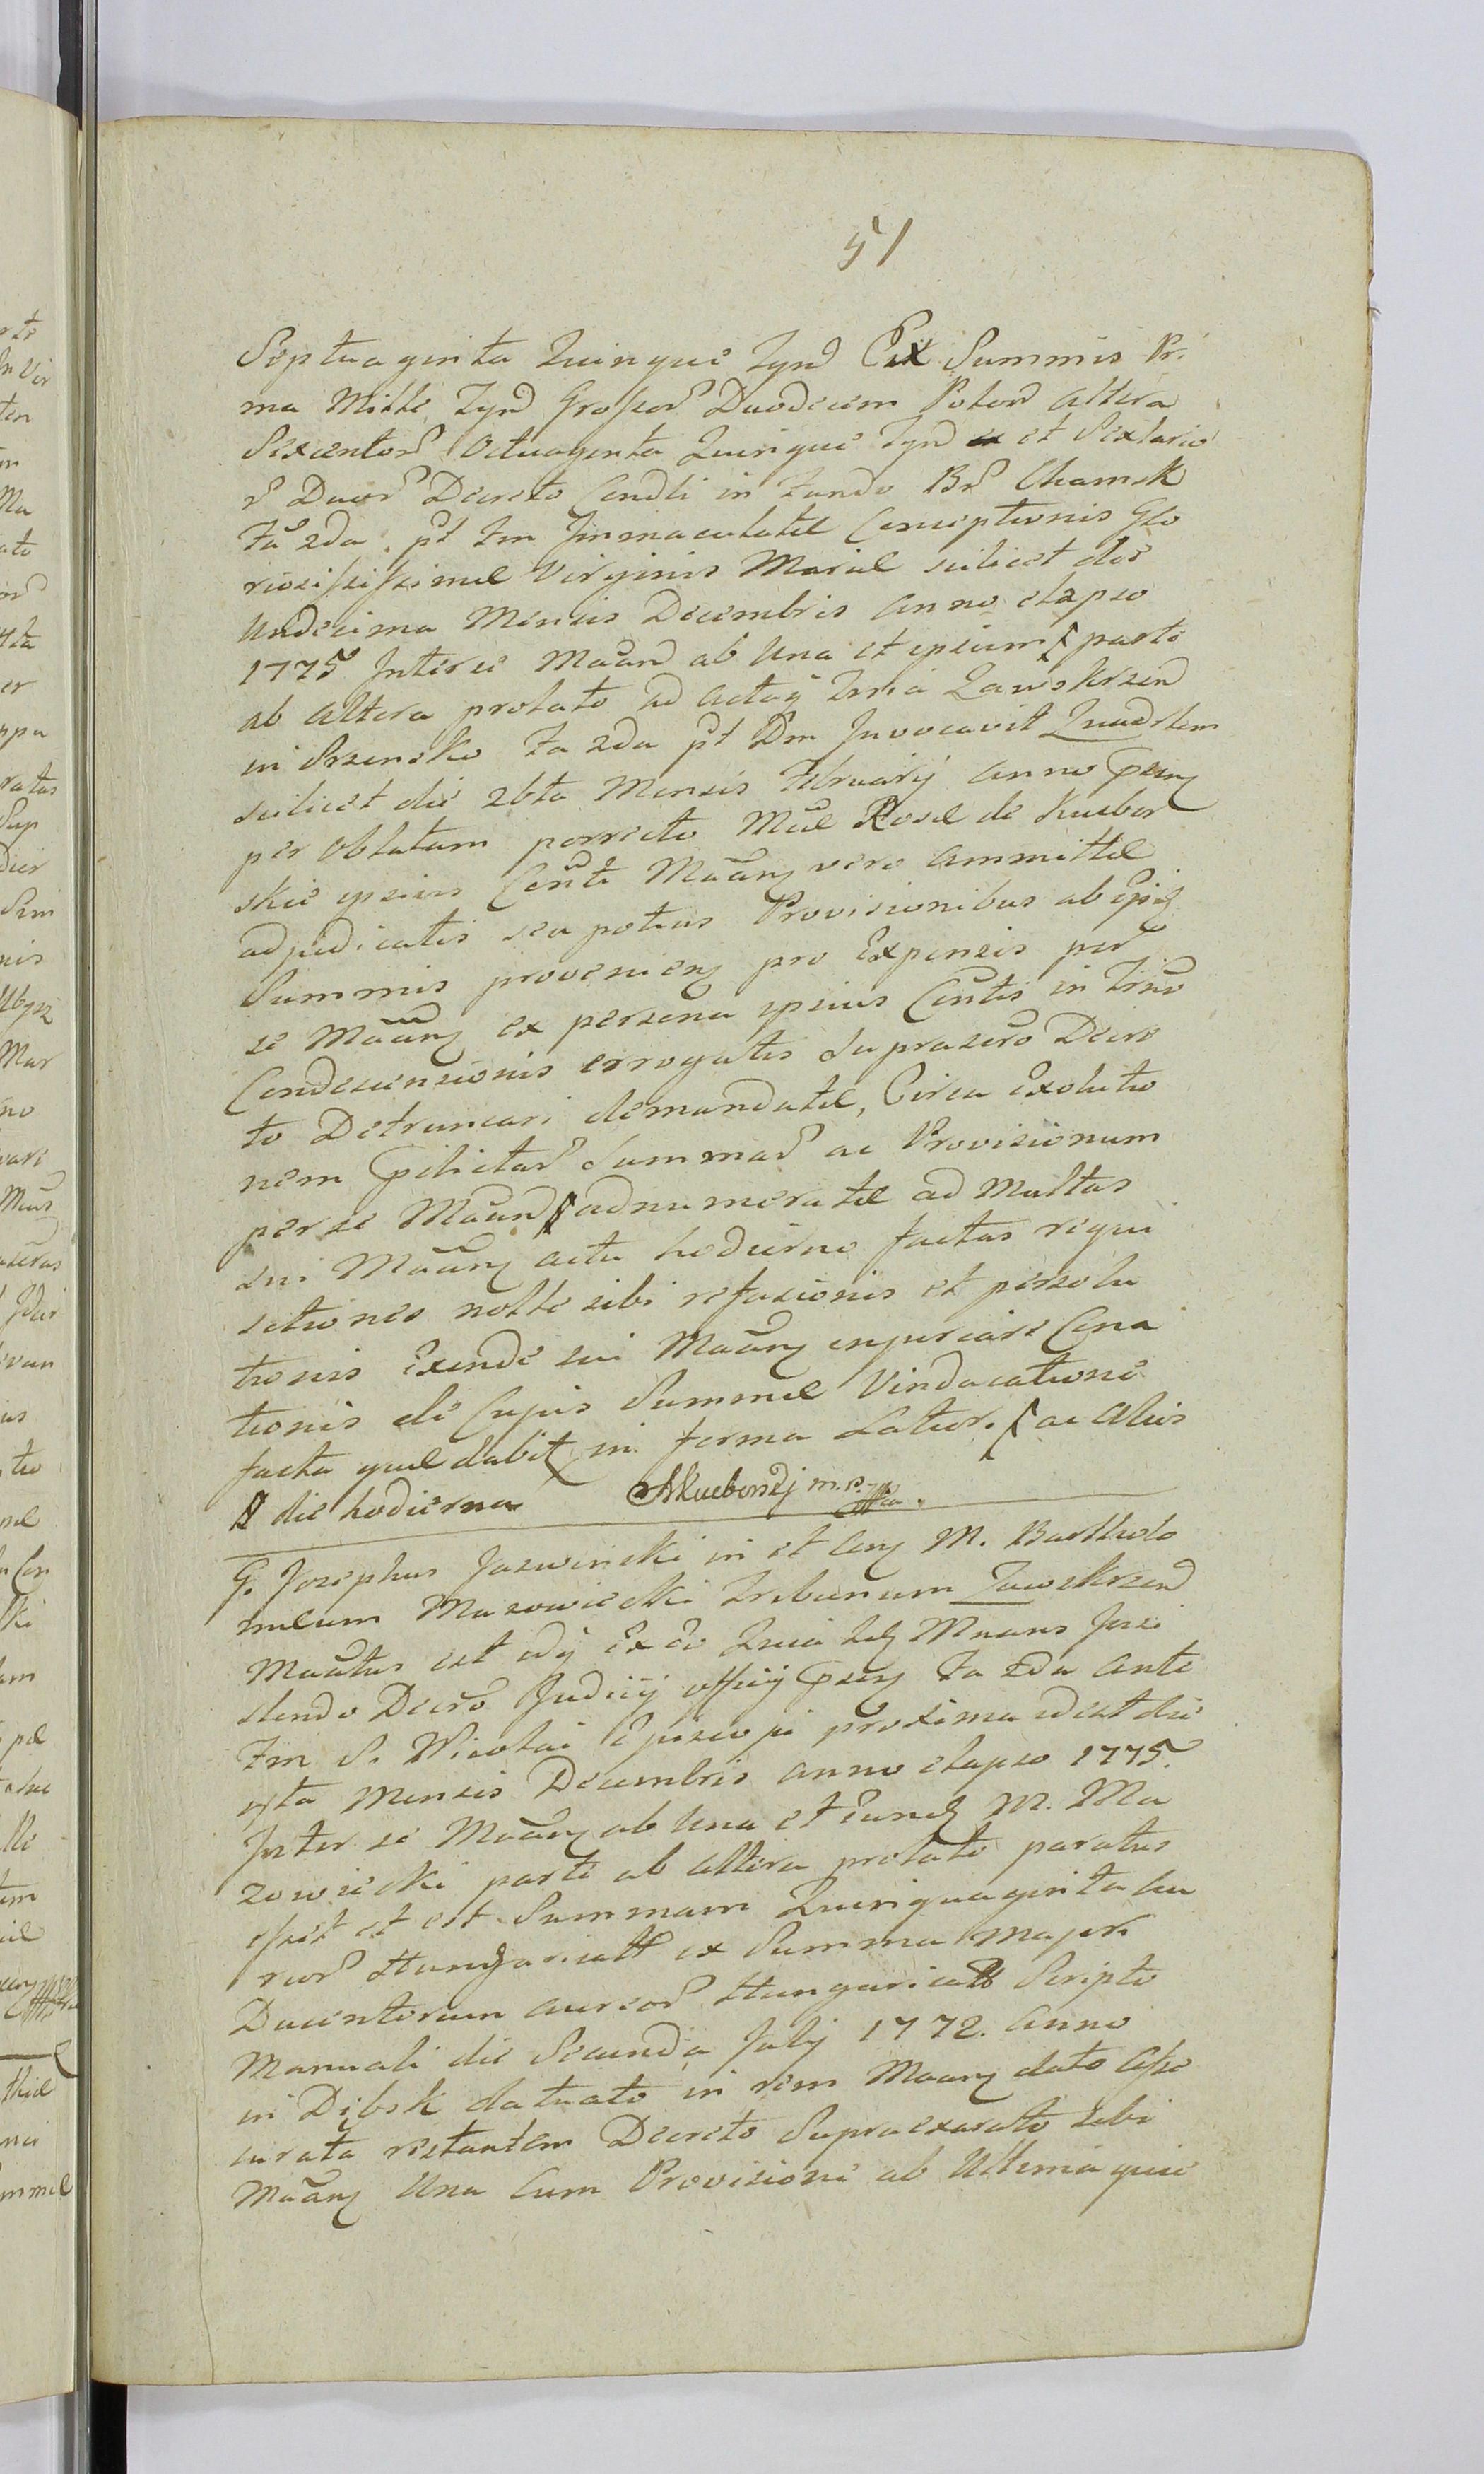 51
Septuaginta Quinque Tynd Ex Summis Pri
ma Mille Tynd Grossor Duodecem Polon altera
Sexentor Octuaginta Quinque Tynd et Sextario
r Duor Decreto Condli in Fundo Br Chamsk
Fa 2da pt Fm Immaculatæ Conceptionis Glo
riosissimæ Virginis Mariæ scilicet die
Undecima Mensis Decembris anno elapso
1775 Inter se Maand ab Una et ipsum parte
ab altera prolato ad acta Zawskrzen
in Srzensko Fa 2da pt Dm Invocavit Quadrlem
scilicet die 26ta Mensis Februarij anno
per oblatam porrecto Mæ Rosæ de Kucbor
skie ipsius Conti Maan vero ammittæ
adjudicatis seu potius Provisionibus ab
Summis provenien pro Expensis per
se Maan ex persona ipsius Contis in
Condescensionis errogatis Suprasero Decre
to Detruncari demandatæ, Circa Exolutio
nem Summar ac Provisionum
per se Maan adnumeratæ ad Multas
sui Maan actu hodierno factas requi
sitiones nolle sibi refusionis et persolu
tionis Exinde sui Maan injuriare Cona
tionis de Cujus Summæ Vindicatione
facta quæ dabit in forma Latior. ac alias
die hodierna Kuckorskj m.p.
G. Josephus Jaswinski in et Con M. Bartholo
mæum Mazowiecki Tribunum Zawskrzen
Maatus est Ex eo Quia Maans Insi
stendo Decro Judicij officij Fa 2da ante
Fm S. Nicolai Episcopi proxima id est die
Mensis Decembris anno elapso 1775.
Inter se Maan ab Una et Eund M. Ma
zowiecki parte ab altera prolato paratus
esset et est Summam Quinquaginta au
reor Hungaricall ex Summa majori
Ducentorum aureor Hungaricall Scripto
Manuali die Secunda Julij 1772. anno
in datuato in rem Maan dato asse
curata restantem Decreto Supraexarato sibi
Maan Una Cum Provisione ab Ultima quie